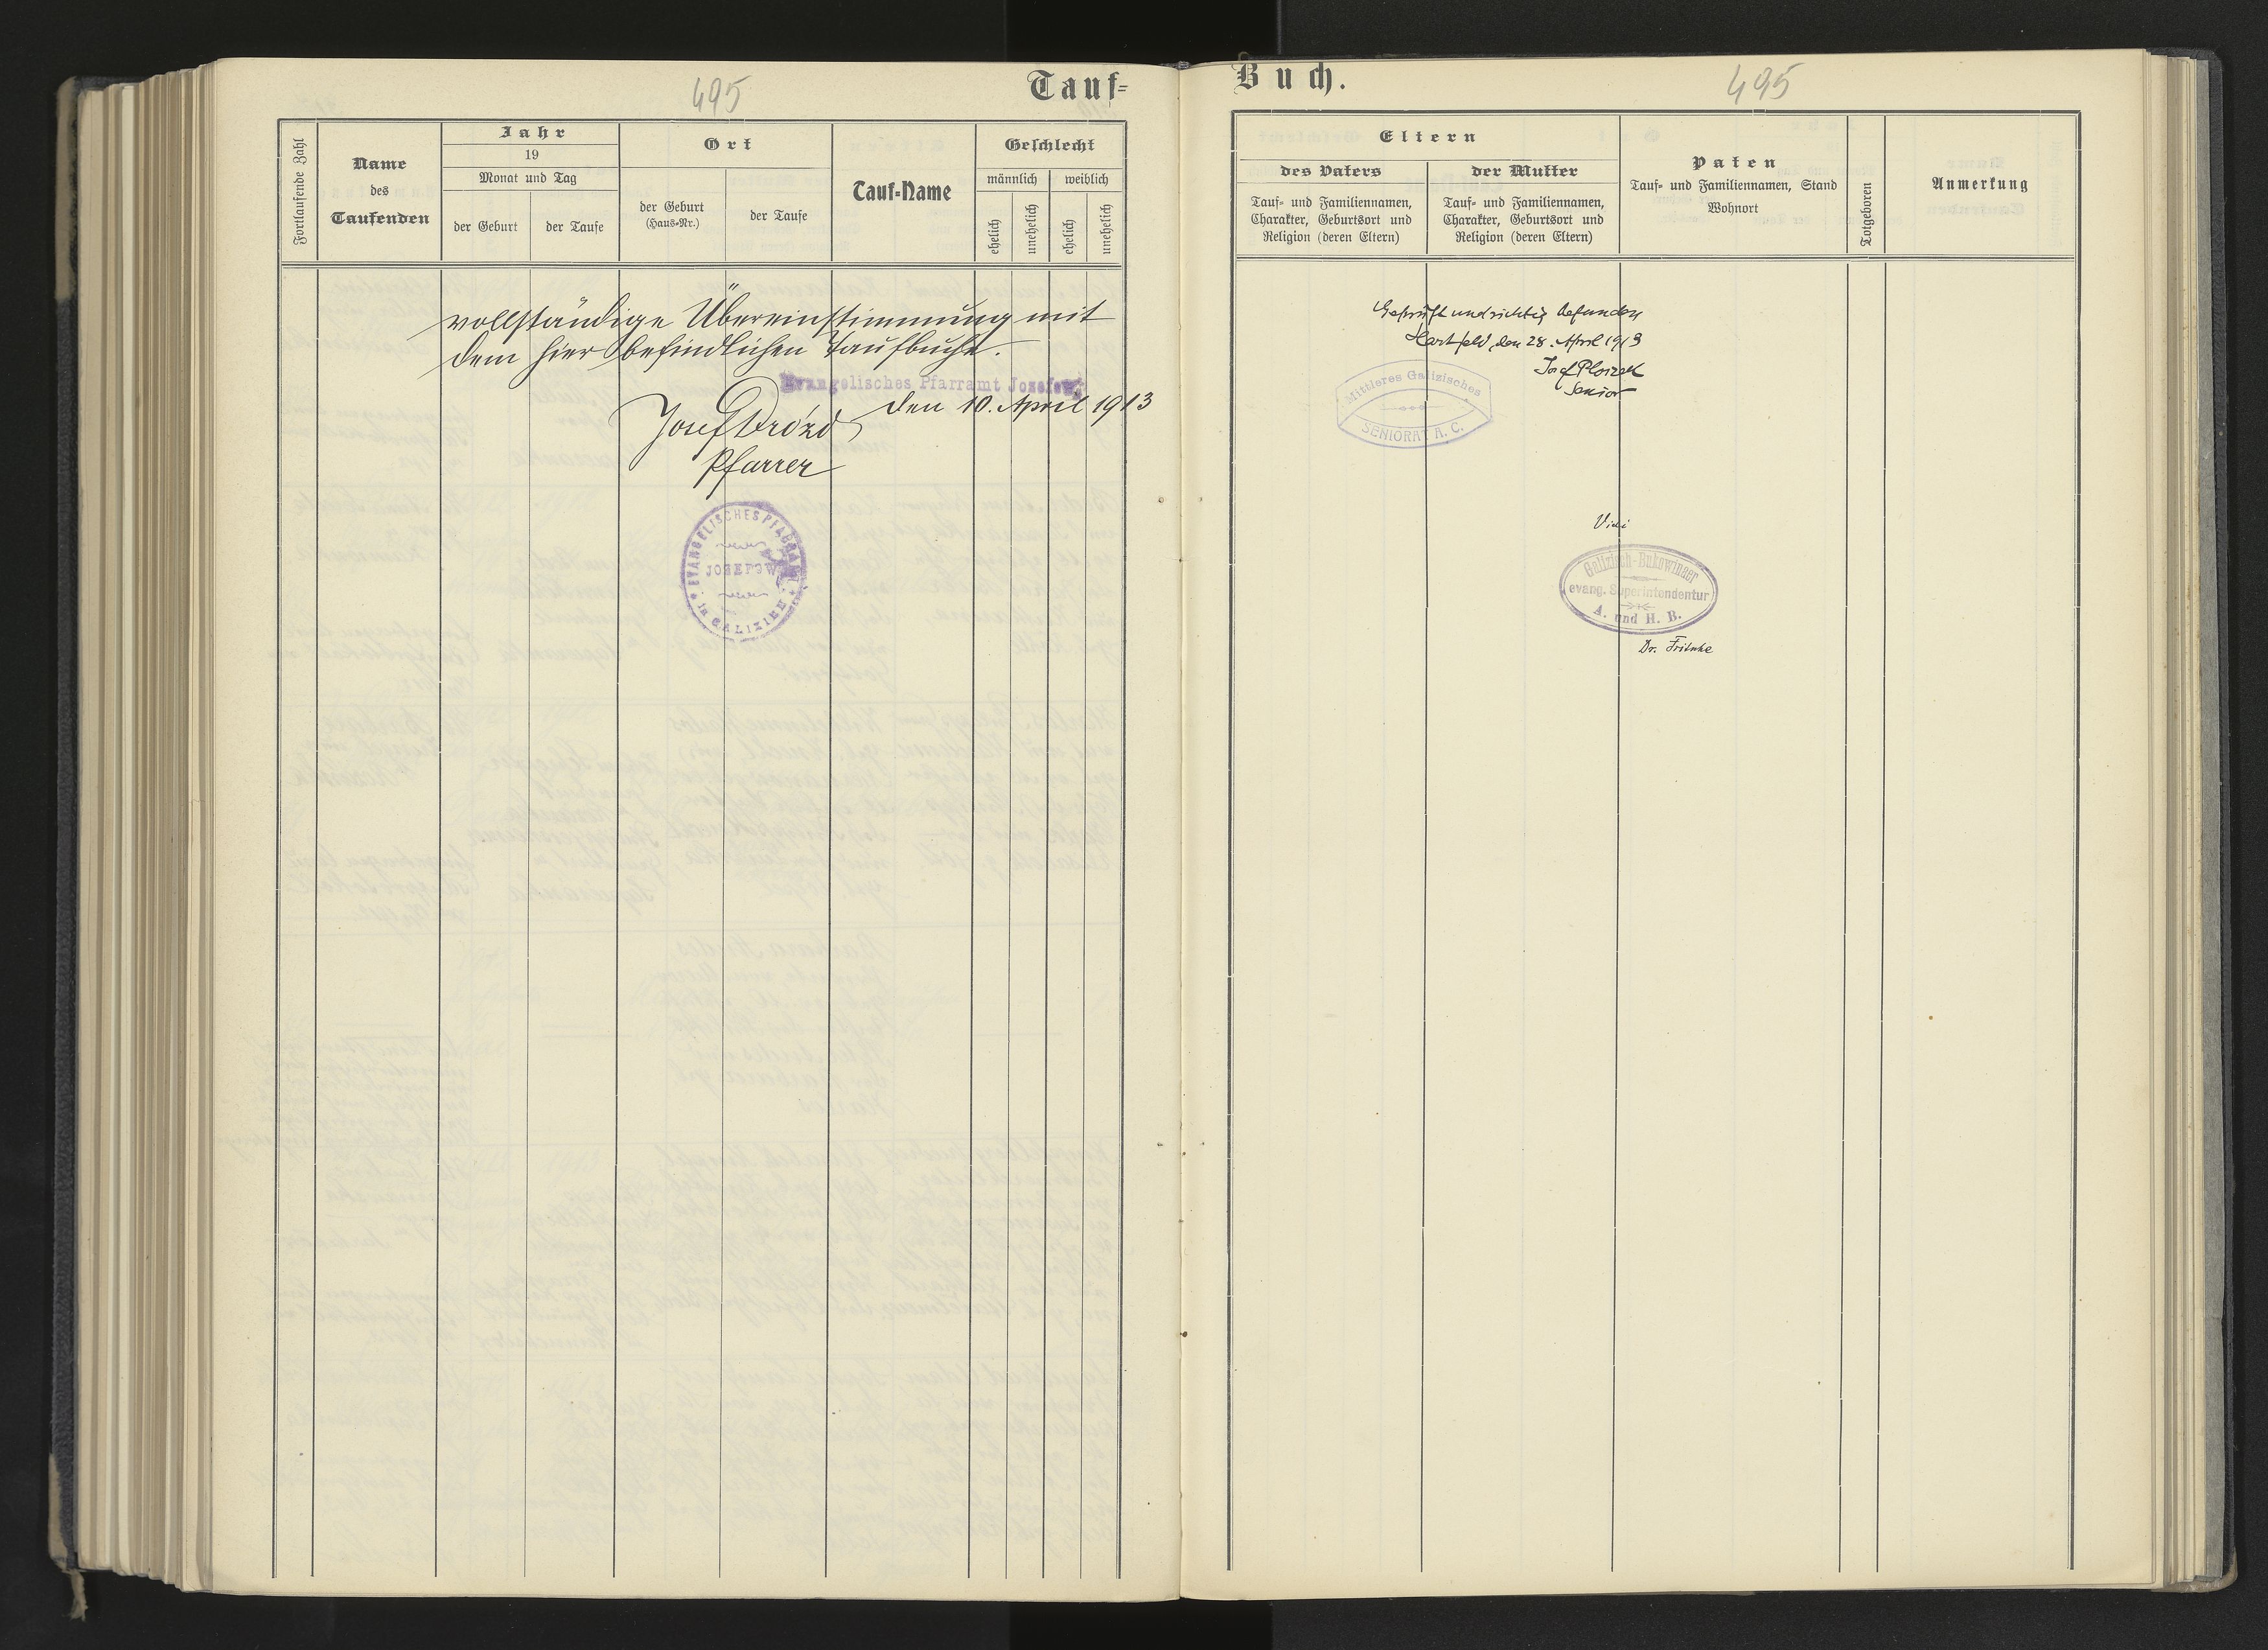 495
Tauf=
Fortlaufende Zahl
Name
des
Taufenden
Jahr
19
Monat und Tag
der Geburt
der Taufe
Ort
der Geburt
(Haus=Nr.)
der Taufe
Tauf=Name
Geschlecht
männlich
weiblich
ehelich
unehelich
ehelich
unehelich
vollständige Übereinstimmung mit
dem hier befindlichen Taufbuche.
Evangelisches Pfarramt Josefow
den 10. April 1913
Josef Drózd
Pfarrer
EVANGELISCHES PFARRAMT
JOSEFOW
in GALIZIEN
Buch.
495
Eltern
des Vaters
Tauf= und Familiennamen,
Charakter, Geburtsort und
Religion (deren Eltern)
der Mutter
Tauf= und Familiennamen,
Charakter, Geburtsort und
Religion (deren Eltern)
Paten
Tauf= und Familiennamen, Stand
Wohnort
Totgeboren
Anmerkung
Geprüft und richtig befunden
Hartfeld, den 28. April 1913
Josef
Senior
Mittleres Galizisches
SENIORAT A. C.
Vidi
Galizisch-Bukowinaer
evang. Superintendentur
A. und H. B.
Dr. Fritsche